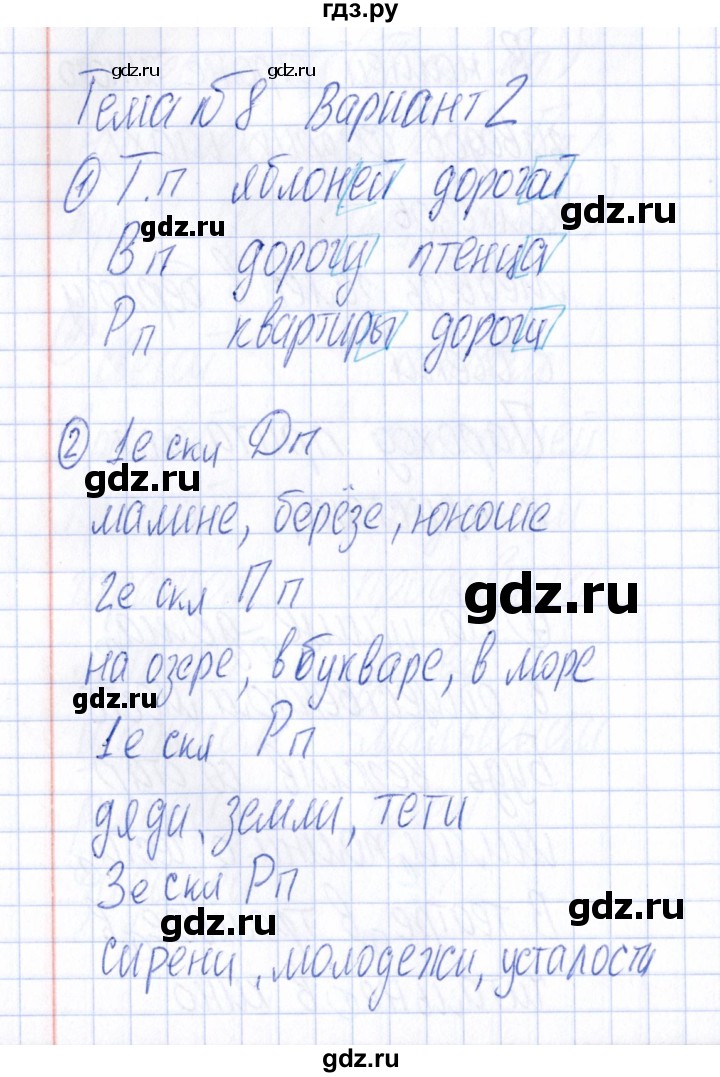 гдз.ру
gdz.ru gdz.ru
Тема №8 Вариант 2
① Т.п яблоней
gdz.ru
Вп дорогу птенца
Рп квартиры дороги
② 1е скл Дп
gdz.ru
малине, берёзе, юноше
2е скл Пп
gdz.ru
на озере, в букваре, в море
gdz.ru
1е скл Рп
дяди, земли, тети
3е скл Рп
gdz.ru gdz.ru
сирени, молодежи, усталости
gdz.ru